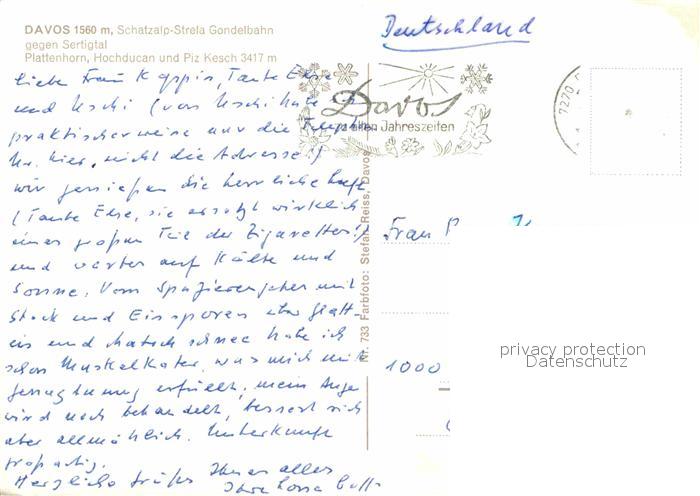 DAVOS 1560 m, Schatzalp-Strela Gondelbahn
gegen Sertigtal
Plattenhorn, Hochducan und Piz Kesch 3417 m
Liebe Frau Koppin, Tante Else
und Uschi (von Uschi habe ich
praktischerweise nur die Telephon
Nr. hier, nicht die Adresse!)
wir genießen die herrliche Luft
(Tante Else, sie ersetzt wirklich
einen großen Teil der Zigaretten!)
und warten auf Kälte und
Sonne. Vom Spazierengehen mit
Stock und Eissporen über Glatt-
eis und Matschschnee habe ich
schon Muskelkater, was mich mit
Genugtuung erfüllt; mein Auge
wird noch behandelt, bessert sich
aber allmählich. Unterkunft
großartig.
Herzliche Grüße Ihnen allen
Ihre
Deutschland
Davos
zu allen Jahreszeiten
7270
Nr. 733 Farbfoto: Stefan Reiss, Davos
Frau
1000
privacy protection
Datenschutz